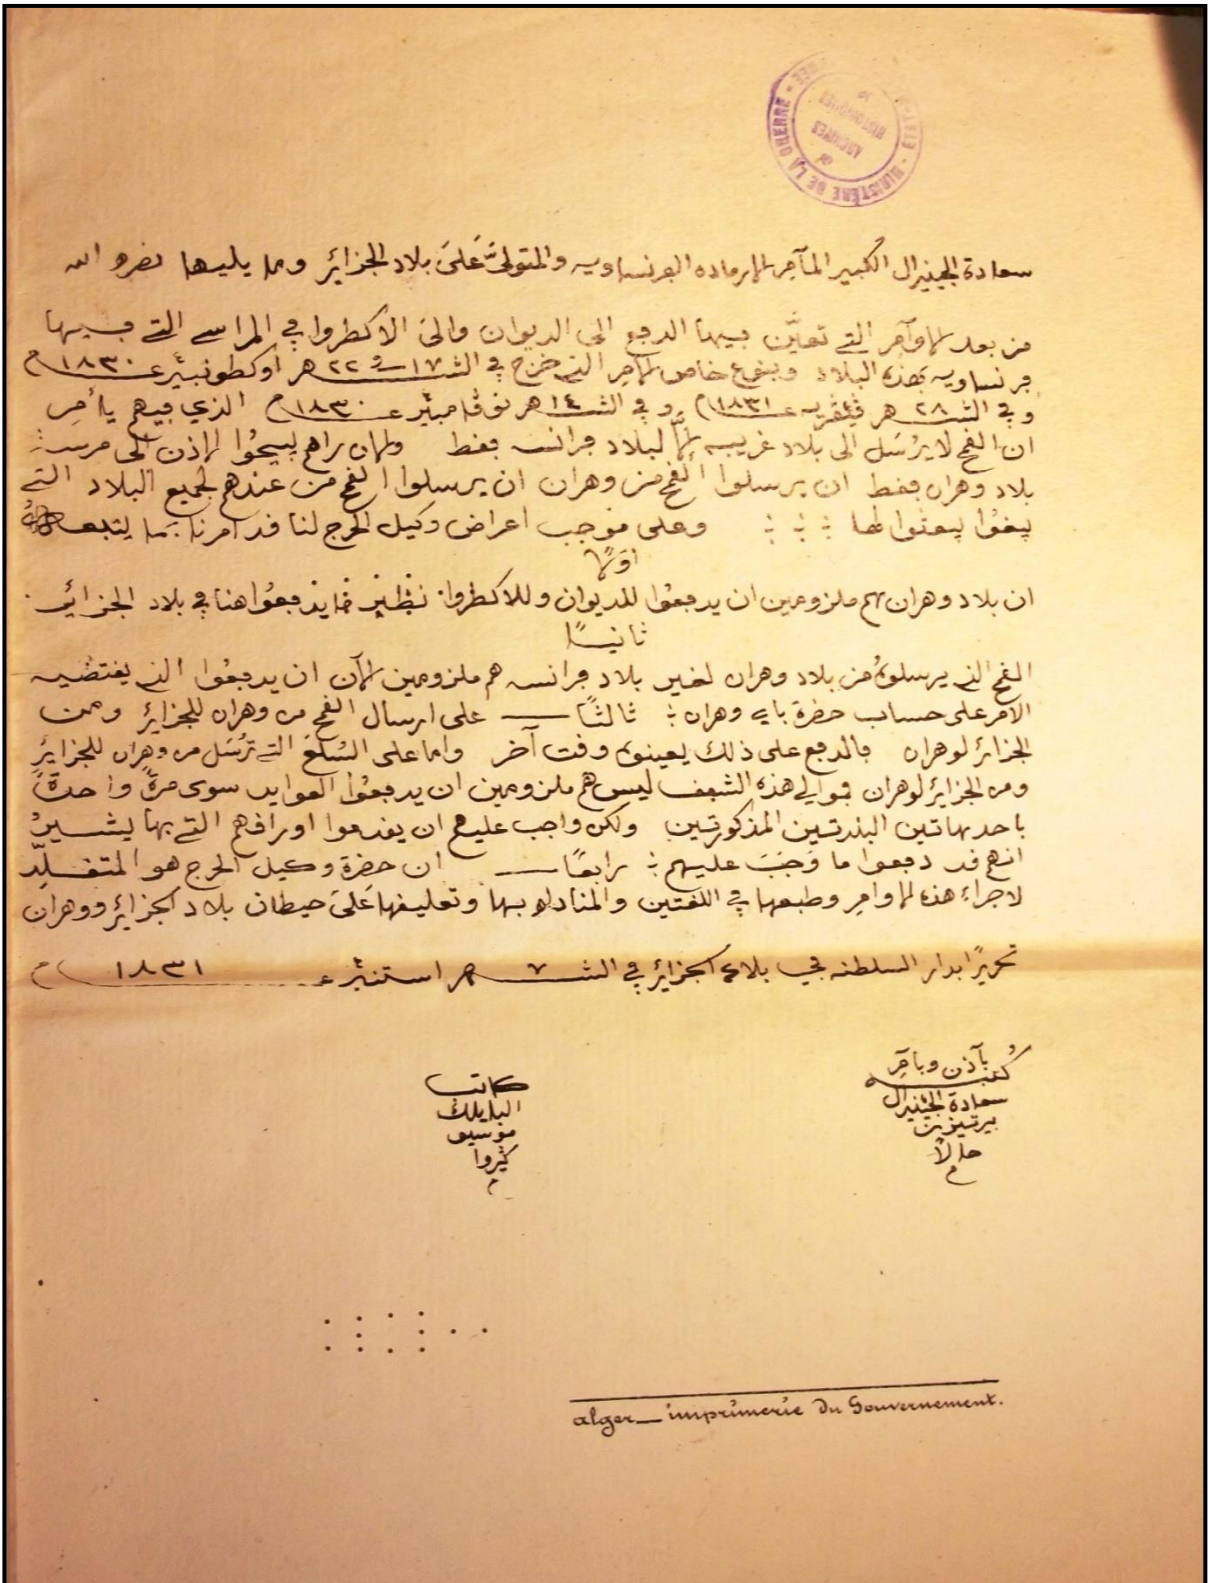 MINISTÈRE DE LA GUERRE
ARCHIVES HISTORIQUES
سعادة الجينرال الكبير المآمر للارماده الفرنساويه والمتولّى عَلىَ بلاد الجزائر وما يليها نصره الله
من بعد لاوآمر التے تعيّن فيها الدفع الى الديوان والىَ الاكطروا في المراسے التے فيها
فرنساويه بهذه البلاد وبنوع خاص لامر الذے خرج في الشـ ١٧ و ٢٢ ـهر اوكطونبير عـ ١٨٣٠ م
و في الشـ ٢٨ ـهر عـ ١٨٣١ م و في الشـ ١٤ ـهر نوڤامبير عـ ١٨٣٠ م الذي فيهم يأمر
ان القمح لا يرُسَل الى بلاد غريبه الاّ لبلاد فرانسه فقط ولان راهم يبيحُوا لاذن الى مرست
بلاد وهران فقط ان يرسلوا القمح من وهران ان يرسلوا القمح من عندهم لجميع البلاد التے
يبغُوا يبعثوا لها ؛ ؛ ؛ وعلى موجب اعراض وكيل الحرج لنا قد امرنا بما يتبع
اوّلاً
ان بلاد وهران هم ملزومين ان يدفعُوا للديوان وللاكطروا نظير ما يدفعُوا هنا في بلاد الجزائر .
ثانيًا
القمح الذے يرسلوهُ من بلاد وهران لغير بلاد فرانسه هم ملزومين لآن ان يدفعُوا الذے يقتضيه
الامر على حساب حضرة بايه وهران ؛ ثالثًا ــ على ارسال القمح من وهران للجزائر ومن
الجزائر لوهران فالدفع على ذلك يعينوه وقت آخر واما على السُلَع التے ترُسَل من وهران للجزائر
ومن الجزائر لوهران فوالي هذه الشقف ليس هم ملزومين ان يدفعُوا العوايد سوى مرةً واحدةً
باحد هاتين البندرتين المذكورتين ولكن واجب عليهم ان يقدموا اوراقهم التے بها يشيرُ
انهم قد دفعوا ما وَجَبَ عليهم ؛ رابعًا ــ ان حضرة وكيل الحرج هو المتقلّد
لاجراء هذه لاوامر وطبعها في اللغتين والمناداه بها وتعليقها عَلىَ حيطان بلاد الجزائر ووهران
تحريرًا بدار السلطنه في بلاد الجزائر في الشـ ٧ ـهر استنبر عـ ١٨٣١ م
بآذن وبامر
سعادة الجينرال
بيرتيزين
حالاً
م
كاتب
البايلك
موسيو
كيروا
م
alger _ imprimerie du Gouvernement.